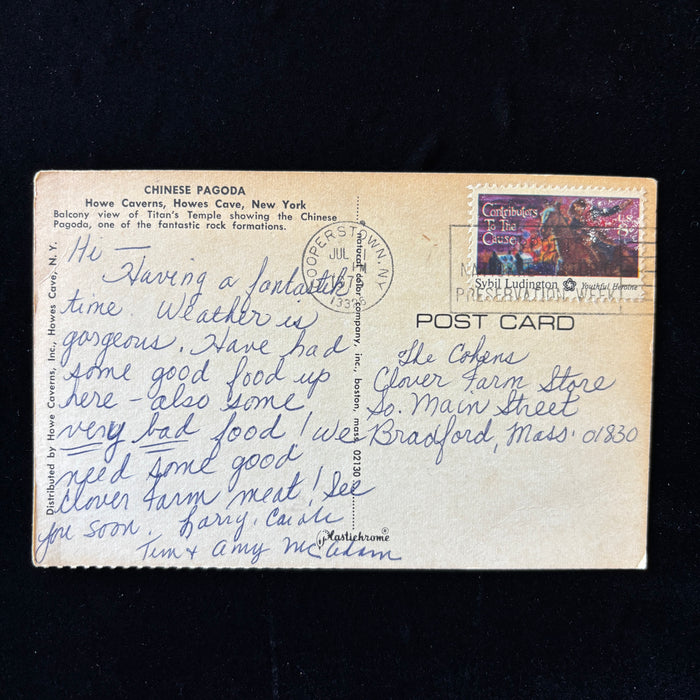 CHINESE PAGODA
Howe Caverns, Howes Cave, New York
Balcony view of Titan's Temple showing the Chinese
Pagoda, one of the fantastic rock formations.
Hi —
Having a fantastik
time Weather is
gorgeous. Have had
some good food up
here - also some
very bad food! We
need some good
Clover Farm meat! See
you soon. Larry, Carole
Tim & Amy McAdam
Distributed by Howe Caverns, Inc., Howes Cave, N. Y.
natural color company, inc., boston, mass. 02130
Plastichrome®
COOPERSTOWN, NY
JUL
PM
13326
PRESERVATION WEEK
Contributors
To The
Cause...
US
Sybil Ludington Youthful Heroine
POST CARD
The Cohens
Clover Farm Store
So. Main Street
Bradford, Mass. 01830